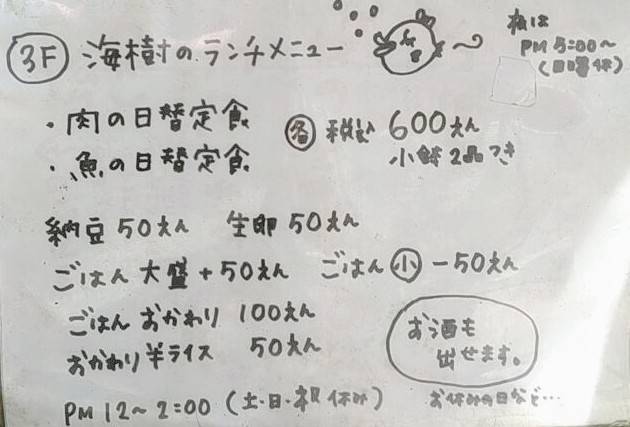 3F 海樹のランチメニュー
夜は
PM 5:00〜
(日曜休)
・肉の日替定食
・魚の日替定食
各 税込 600えん
小鉢2品つき
納豆 50えん 生卵 50えん
ごはん 大盛 +50えん ごはん 小 −50えん
ごはん おかわり 100えん
おかわり半ライス 50えん
お酒も
出せます。
お休みの日など…
PM 12〜2:00 (土・日・祝休み)